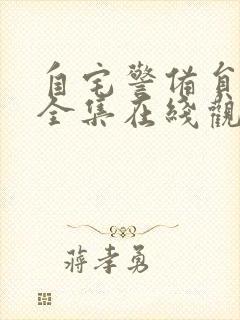 自宅警備員
全集在綫觀
蔣孝勇